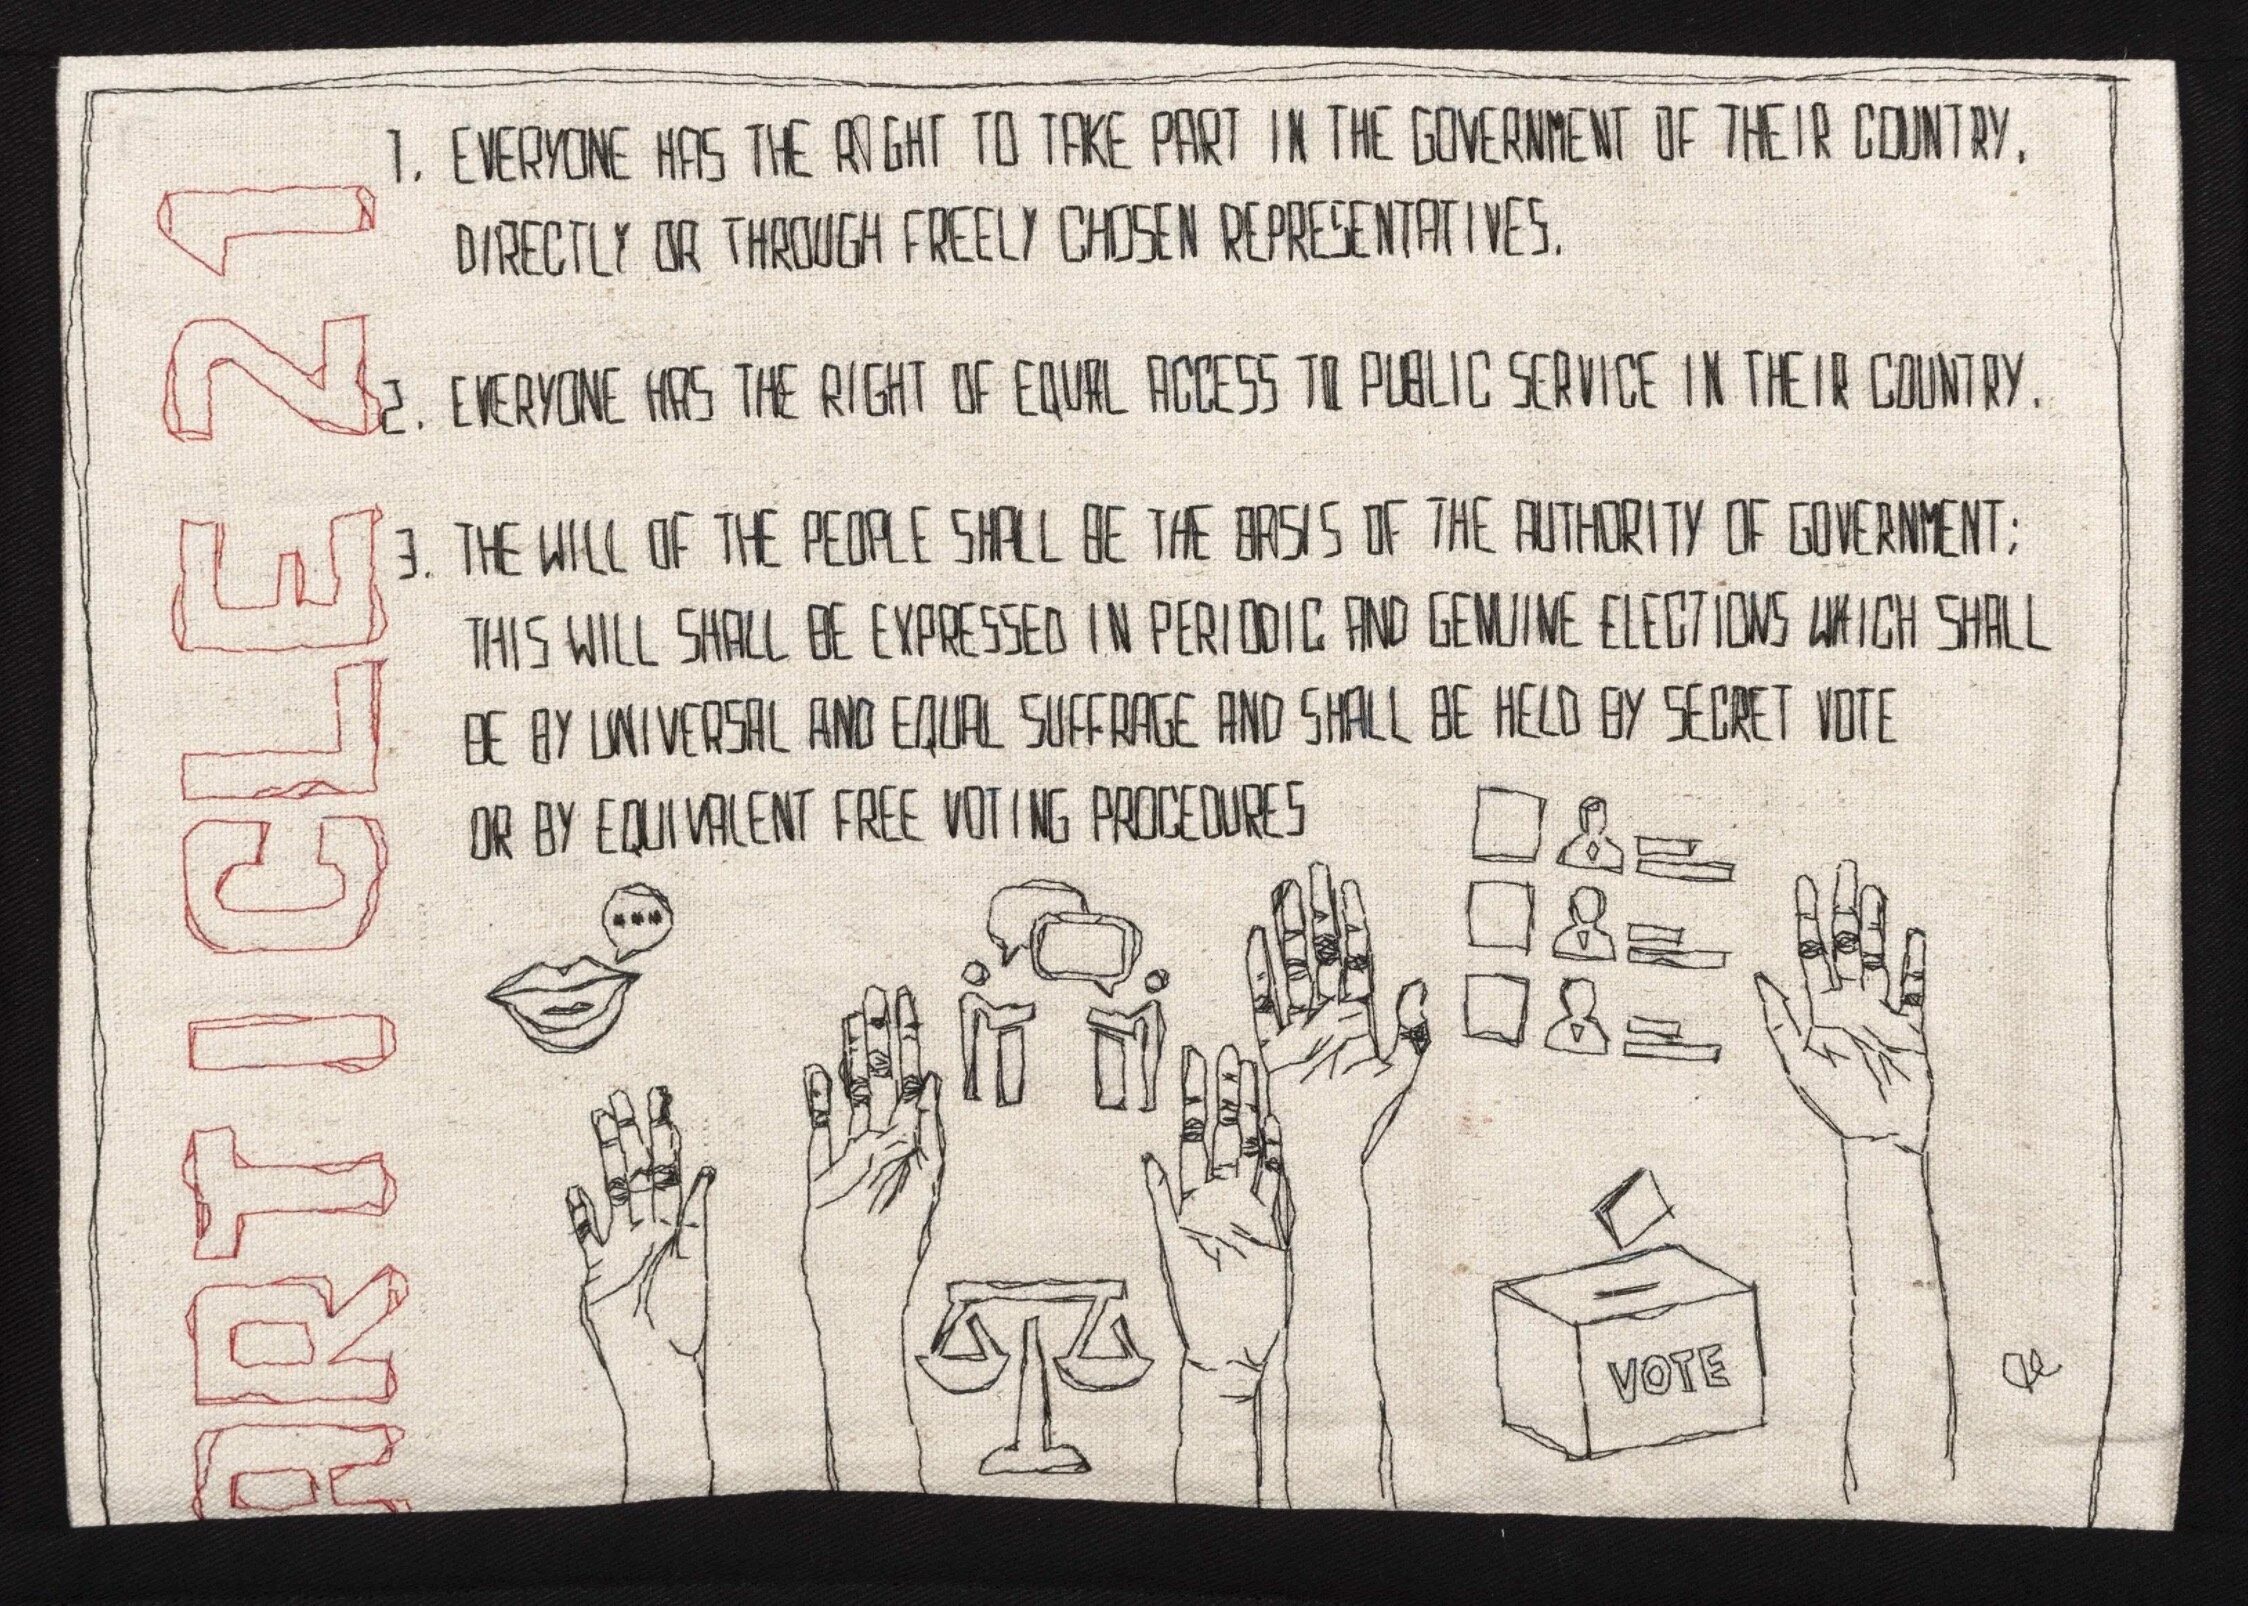 ARTICLE 21
1. EVERYONE HAS THE RIGHT TO TAKE PART IN THE GOVERNMENT OF THEIR COUNTRY,
DIRECTLY OR THROUGH FREELY CHOSEN REPRESENTATIVES.
2. EVERYONE HAS THE RIGHT OF EQUAL ACCESS TO PUBLIC SERVICE IN THEIR COUNTRY.
3. THE WILL OF THE PEOPLE SHALL BE THE BASIS OF THE AUTHORITY OF GOVERNMENT;
THIS WILL SHALL BE EXPRESSED IN PERIODIC AND GENUINE ELECTIONS WHICH SHALL
BE BY UNIVERSAL AND EQUAL SUFFRAGE AND SHALL BE HELD BY SECRET VOTE
OR BY EQUIVALENT FREE VOTING PROCEDURES
VOTE